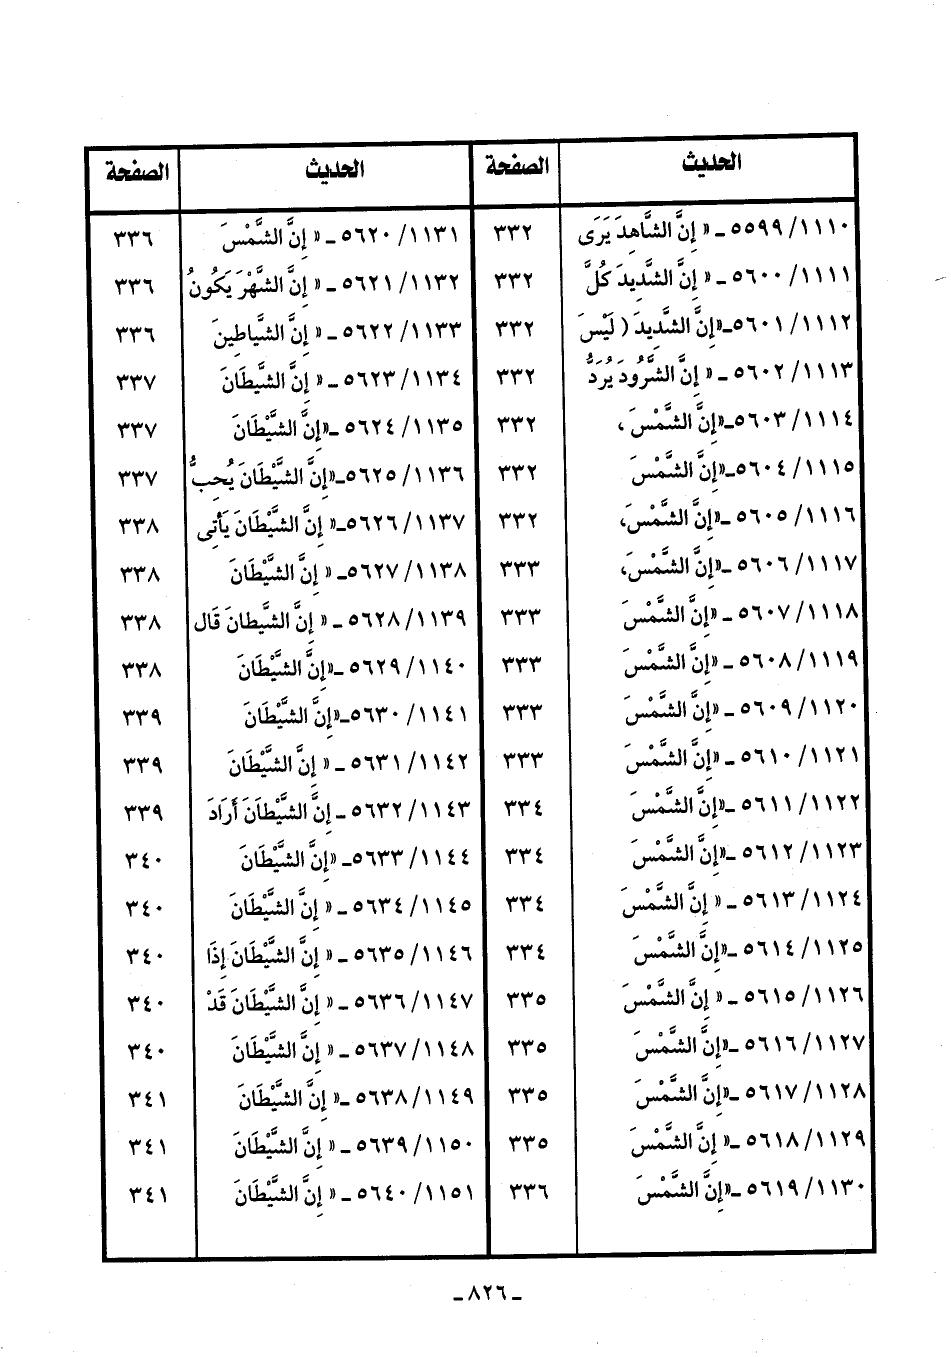 الحديث الصفحة
١١١٠/ ٥٥٩٩ ـ « إِنَّ الشَّاهِدَ يَرَى ٣٣٢
١١١١/ ٥٦٠٠ ـ « إِنَّ الشَّدِيدَ كُلَّ ٣٣٢
١١١٢/ ٥٦٠١ـ«إِنَّ الشَّدِيدَ ( لَيْسَ ٣٣٢
١١١٣/ ٥٦٠٢ ـ « إِنَّ الشَّرُودَ يُرَدُّ ٣٣٢
١١١٤/ ٥٦٠٣ـ«إِنَّ الشَّمْسَ ، ٣٣٢
١١١٥/ ٥٦٠٤ ـ«إِنَّ الشَّمْسَ ٣٣٢
١١١٦/ ٥٦٠٥ ـ«إِنَّ الشَّمْسَ، ٣٣٢
١١١٧/ ٥٦٠٦ ـ«إِنَّ الشَّمْسَ، ٣٣٣
١١١٨/ ٥٦٠٧ ـ «إِنَّ الشَّمْسَ ٣٣٣
١١١٩/ ٥٦٠٨ ـ «إِنَّ الشَّمْسَ ٣٣٣
١١٢٠/ ٥٦٠٩ ـ «إِنَّ الشَّمْسَ ٣٣٣
١١٢١/ ٥٦١٠ ـ «إِنَّ الشَّمْسَ ٣٣٣
١١٢٢/ ٥٦١١ ـ«إِنَّ الشَّمْسَ ٣٣٤
١١٢٣/ ٥٦١٢ ـ«إِنَّ الشَّمْسَ ٣٣٤
١١٢٤/ ٥٦١٣ ـ « إِنَّ الشَّمْسَ ٣٣٤
١١٢٥/ ٥٦١٤ ـ«إِنَّ الشَّمْسَ ٣٣٤
١١٢٦/ ٥٦١٥ ـ « إِنَّ الشَّمْسَ ٣٣٥
١١٢٧/ ٥٦١٦ ـ«إِنَّ الشَّمْسَ ٣٣٥
١١٢٨/ ٥٦١٧ ـ«إِنَّ الشَّمْسَ ٣٣٥
١١٢٩/ ٥٦١٨ ـ« إِنَّ الشَّمْسَ ٣٣٥
١١٣٠/ ٥٦١٩ ـ«إِنَّ الشَّمْسَ ٣٣٦
الحديث الصفحة
١١٣١/ ٥٦٢٠ ـ « إِنَّ الشَّمْسَ ٣٣٦
١١٣٢/ ٥٦٢١ ـ « إِنَّ الشَّهْرَ يَكُونُ ٣٣٦
١١٣٣/ ٥٦٢٢ ـ « إِنَّ الشَّيَاطِينَ ٣٣٦
١١٣٤/ ٥٦٢٣ ـ « إِنَّ الشَّيْطَانَ ٣٣٧
١١٣٥/ ٥٦٢٤ ـ«إِنَّ الشَّيْطَانَ ٣٣٧
١١٣٦/ ٥٦٢٥ـ«إِنَّ الشَّيْطَانَ يُحِبُّ ٣٣٧
١١٣٧/ ٥٦٢٦ـ« إِنَّ الشَّيْطَانَ يَأْتِى ٣٣٨
١١٣٨/ ٥٦٢٧ـ « إِنَّ الشَّيْطَانَ ٣٣٨
١١٣٩/ ٥٦٢٨ ـ « إِنَّ الشَّيطانَ قَال ٣٣٨
١١٤٠/ ٥٦٢٩ ـ«إِنَّ الشَّيْطَانَ ٣٣٨
١١٤١/ ٥٦٣٠ـ«إِنَّ الشَّيْطَانَ ٣٣٩
١١٤٢/ ٥٦٣١ ـ « إِنَّ الشَّيْطَانَ ٣٣٩
١١٤٣/ ٥٦٣٢ ـ إِنَّ الشَّيْطَانَ أَرَادَ ٣٣٩
١١٤٤/ ٥٦٣٣ـ «إِنَّ الشَّيْطَانَ ٣٤٠
١١٤٥/ ٥٦٣٤ ـ « إِنَّ الشَّيْطَانَ ٣٤٠
١١٤٦/ ٥٦٣٥ ـ « إِنَّ الشَّيْطَانَ إِذَا ٣٤٠
١١٤٧/ ٥٦٣٦ ـ « إِنَّ الشَّيْطَانَ قَدْ ٣٤٠
١١٤٨/ ٥٦٣٧ ـ « إِنَّ الشَّيْطَانَ ٣٤٠
١١٤٩/ ٥٦٣٨ ـ« إِنَّ الشَّيْطَانَ ٣٤١
١١٥٠/ ٥٦٣٩ ـ « إِنَّ الشَّيْطَانَ ٣٤١
١١٥١/ ٥٦٤٠ ـ « إِنَّ الشَّيْطَانَ ٣٤١
ـ ٨٢٦ ـ